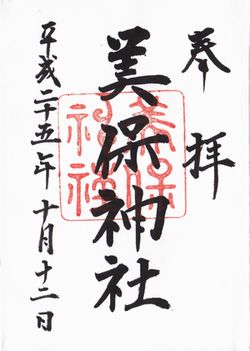 奉拝
美保神社
平成二十五年十月十二日
美保
神社